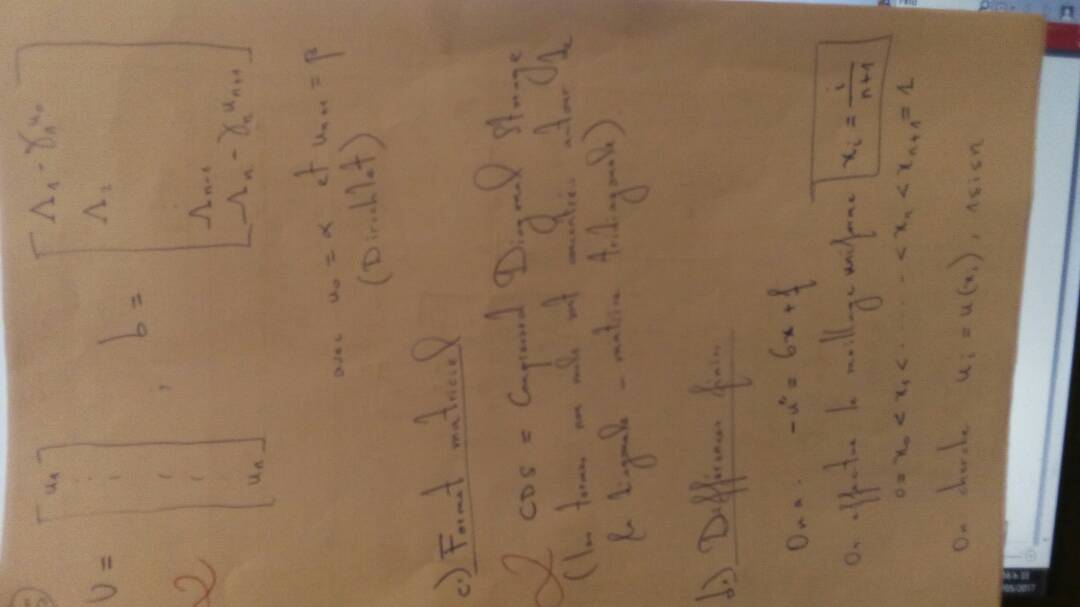 U = [ u1 ⋮ un ] , b = [ Λ1 - γ1 u0
Λ2
Λn-1
Λn - γn un+1 ]
avec u0 = α et un+1 = β
(Dirichlet)
2
c.) Format matriciel
CDS = Compressed Diagonal Storage
(les termes non nuls sont concentrés autour de
la diagonale - matrice tridiagonale)
2
b.) Différences finies
On a - u" = 6x + f
On effectue le maillage uniforme xi = i/n+1
0 = x0 < x1 < ..... < xn < xn+1 = 1
On cherche ui = u(xi), 1≤i≤n